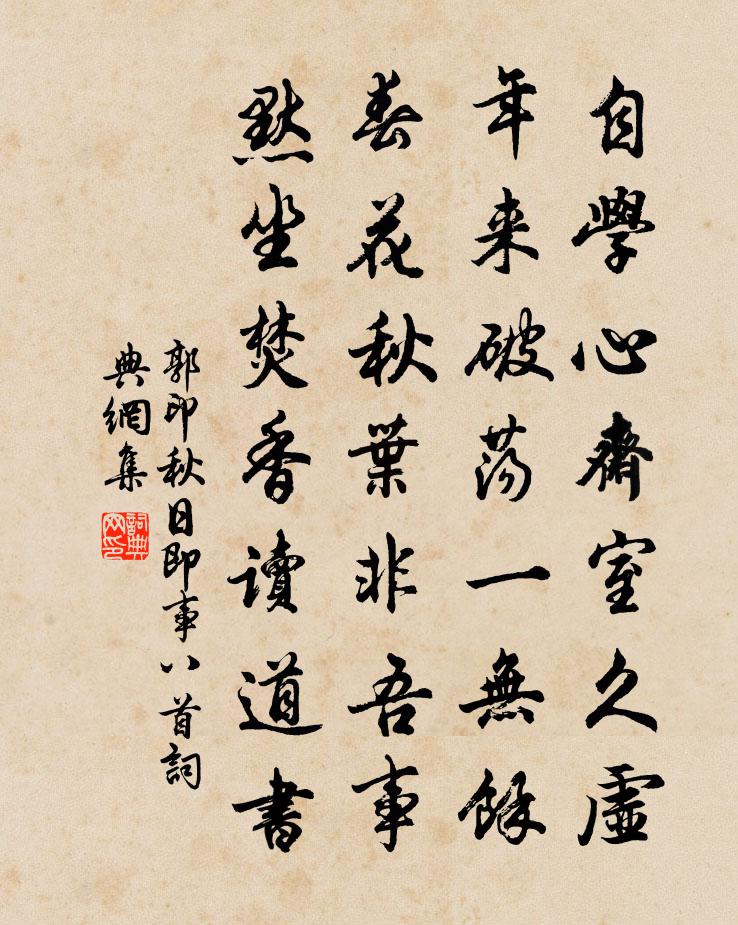 自學心齋室久虛
年來破蕩一無餘
春花秋葉非吾事
默坐焚香讀道書
郭印秋日即事八首詞
典網集
詞典
网印